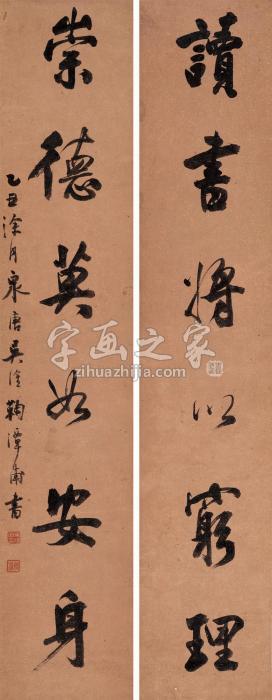 讀書將以窮理
崇德莫如安身
乙丑涂月泉唐吳淦鞠潭甫書
字画之家
zihuazhijia.com